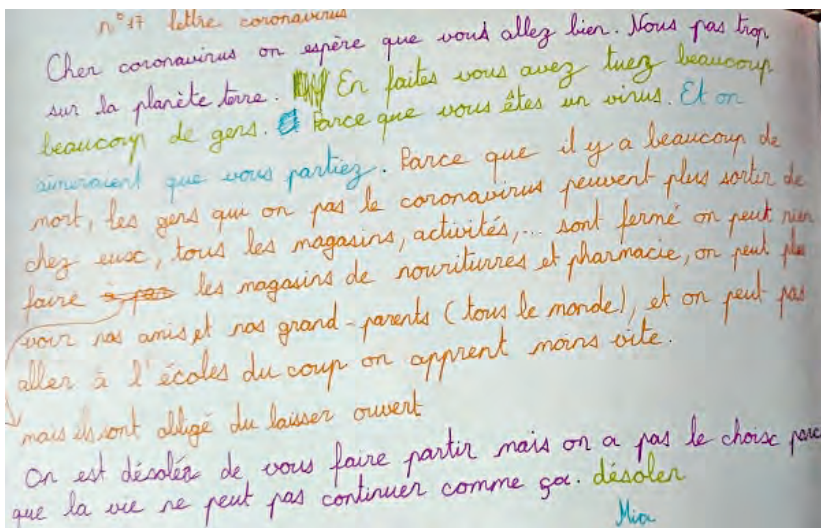 n°17 lettre coronavirus
Cher coronavirus on espère que vous allez bien. Nous pas trop
sur la planète terre. En faites vous avez tuez beaucoup
beaucoup de gens. Parce que vous êtes un virus. Et on
aimeraient que vous partiez. Parce que il y a beaucoup de
mort, les gens qui on pas le coronavirus peuvent plus sortir de
chez eux, tous les magasins, activités,... sont fermé on peut rien
faire à pas les magasins de nouriturres et pharmacie, on peut plu
voir nos amis et nos grand-parents (tous le monde), et on peut pas
aller à l'écoles du coup on apprent moins vite.
mais ils sont obligé du laisser ouvert
On est désolér de vous faire partir mais on a pas le choix parc
que la vie ne peut pas continuer comme ça. désoler
Mia